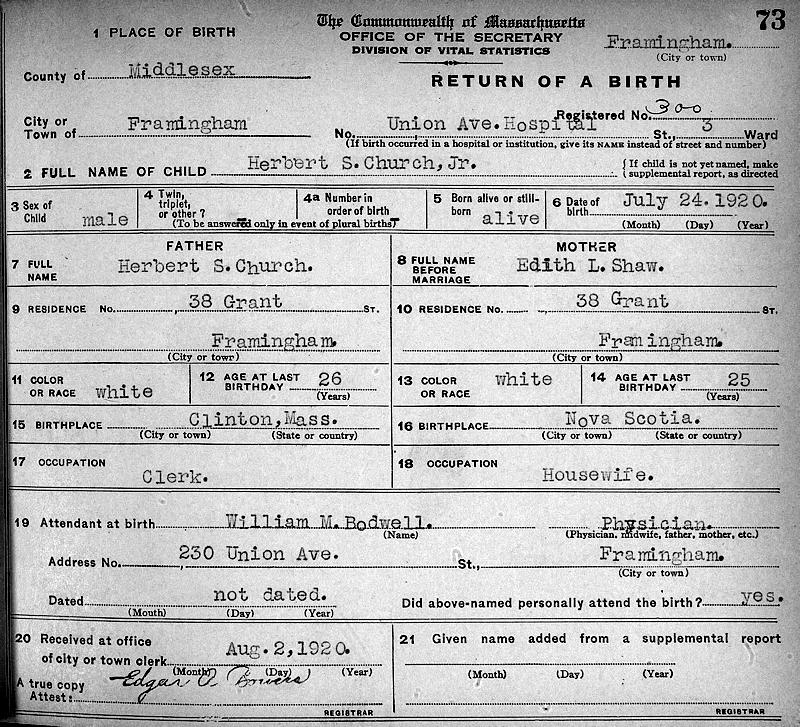 73
The Commonwealth of Massachusetts
1 PLACE OF BIRTH OFFICE OF THE SECRETARY Framingham.
DIVISION OF VITAL STATISTICS (City or town)
County of Middlesex
RETURN OF A BIRTH
Registered No. 300
City or Town of Framingham No. Union Ave. Hospital St., 3 Ward
(If birth occurred in a hospital or institution, give its NAME instead of street and number)
2 FULL NAME OF CHILD Herbert S. Church, Jr. {If child is not yet named, make supplemental report, as directed
3 Sex of Child male 4 Twin, triplet, or other? 4a Number in order of birth 5 Born alive or still-born alive 6 Date of birth July 24. 1920.
(To be answered only in event of plural births) (Month) (Day) (Year)
FATHER MOTHER
7 FULL NAME Herbert S. Church. 8 FULL NAME BEFORE MARRIAGE Edith L. Shaw.
9 RESIDENCE No. 38 Grant ST. 10 RESIDENCE No. 38 Grant ST.
Framingham. Framingham.
(City or town) (City or town)
11 COLOR OR RACE white 12 AGE AT LAST BIRTHDAY 26 13 COLOR OR RACE white 14 AGE AT LAST BIRTHDAY 25
(Years) (Years)
15 BIRTHPLACE Clinton, Mass. 16 BIRTHPLACE Nova Scotia.
(City or town) (State or country) (City or town) (State or country)
17 OCCUPATION Clerk. 18 OCCUPATION Housewife.
19 Attendant at birth William M. Bodwell. Physician.
(Name) (Physician, midwife, father, mother, etc.)
Address No. 230 Union Ave. St., Framingham.
(City or town)
Dated not dated. Did above-named personally attend the birth? yes.
(Month) (Day) (Year)
20 Received at office of city or town clerk Aug. 2, 1920. 21 Given name added from a supplemental report
(Month) (Day) (Year) (Month) (Day) (Year)
A true copy Attest: Edgar
REGISTRAR REGISTRAR